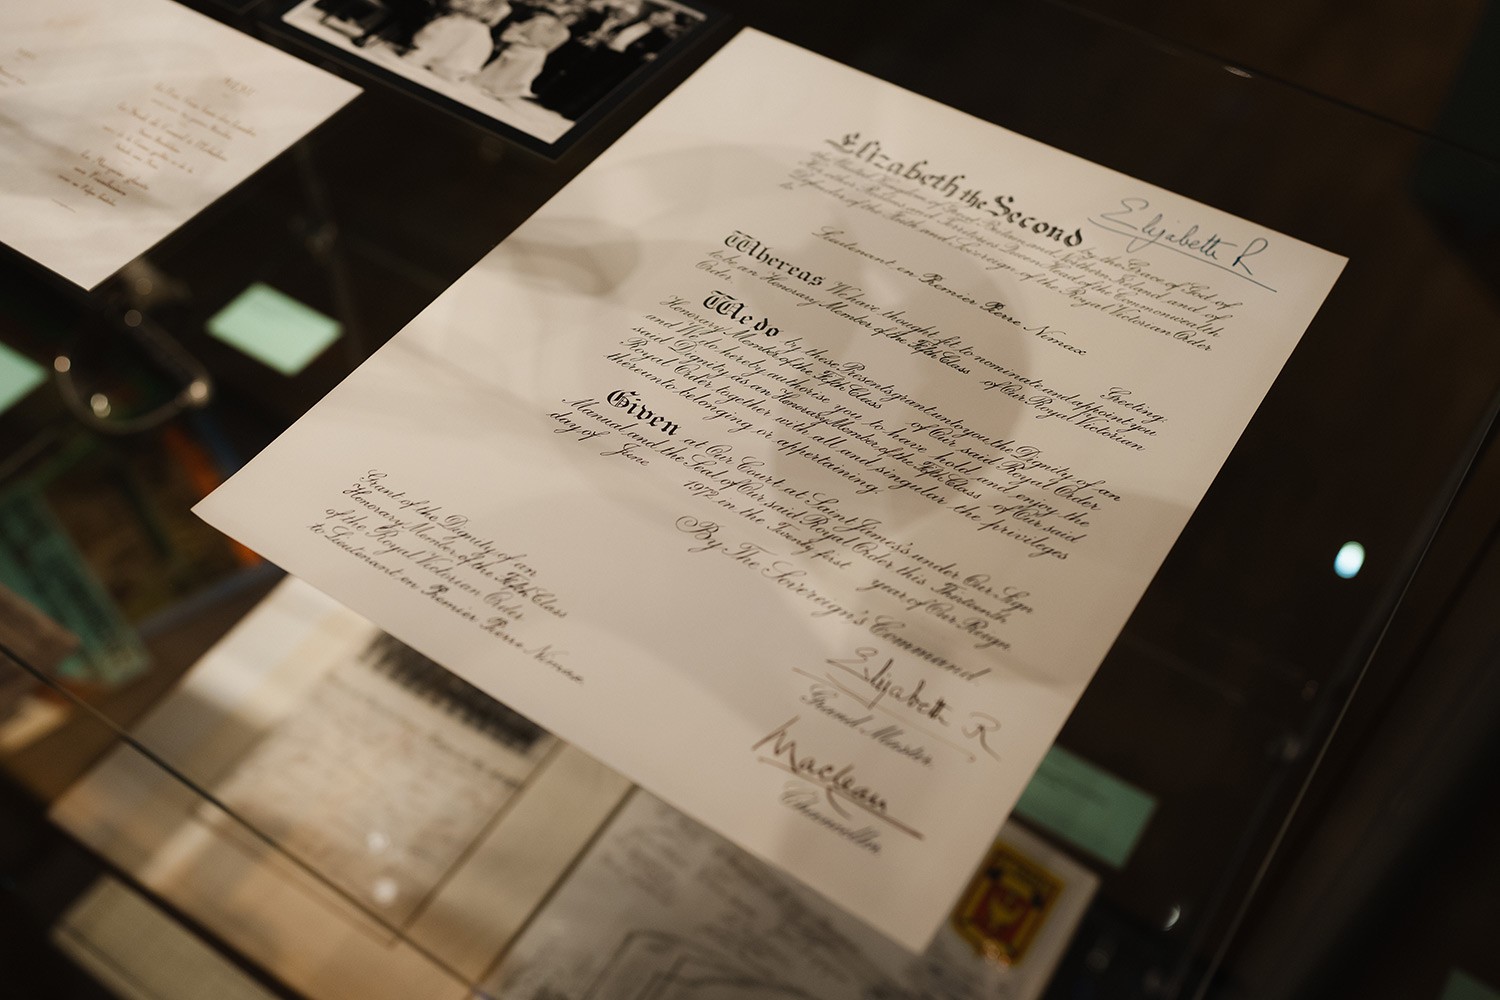 Elizabeth R
Elizabeth the Second by the Grace of God of
the United Kingdom of Great Britain and Northern Ireland and of
Her other Realms and Territories Queen, Head of the Commonwealth,
Defender of the Faith and Sovereign of the Royal Victorian Order
to
Lieutenant en Premier Pierre Nomax
Greeting.
Whereas We have thought fit to nominate and appoint you
to be an Honorary Member of the Fifth Class of Our Royal Victorian
Order.
We do by these Presents grant unto you the Dignity of an
Honorary Member of the Fifth Class of Our said Royal Order
and We do hereby authorise you to have hold and enjoy the
said Dignity as an Honorary Member of the Fifth Class of Our said
Royal Order together with all and singular the privileges
thereunto belonging or appertaining.
Given at Our Court at Saint James's under Our Sign
Manual and the Seal of Our said Royal Order this Thirteenth
day of June 1972 in the Twenty first year of Our Reign.
By The Sovereign's Command
Elizabeth R
Grand Master.
Maclean
Chancellor
Grant of the Dignity of an
Honorary Member of the Fifth Class
of the Royal Victorian Order
to Lieutenant en Premier Pierre Nomax.